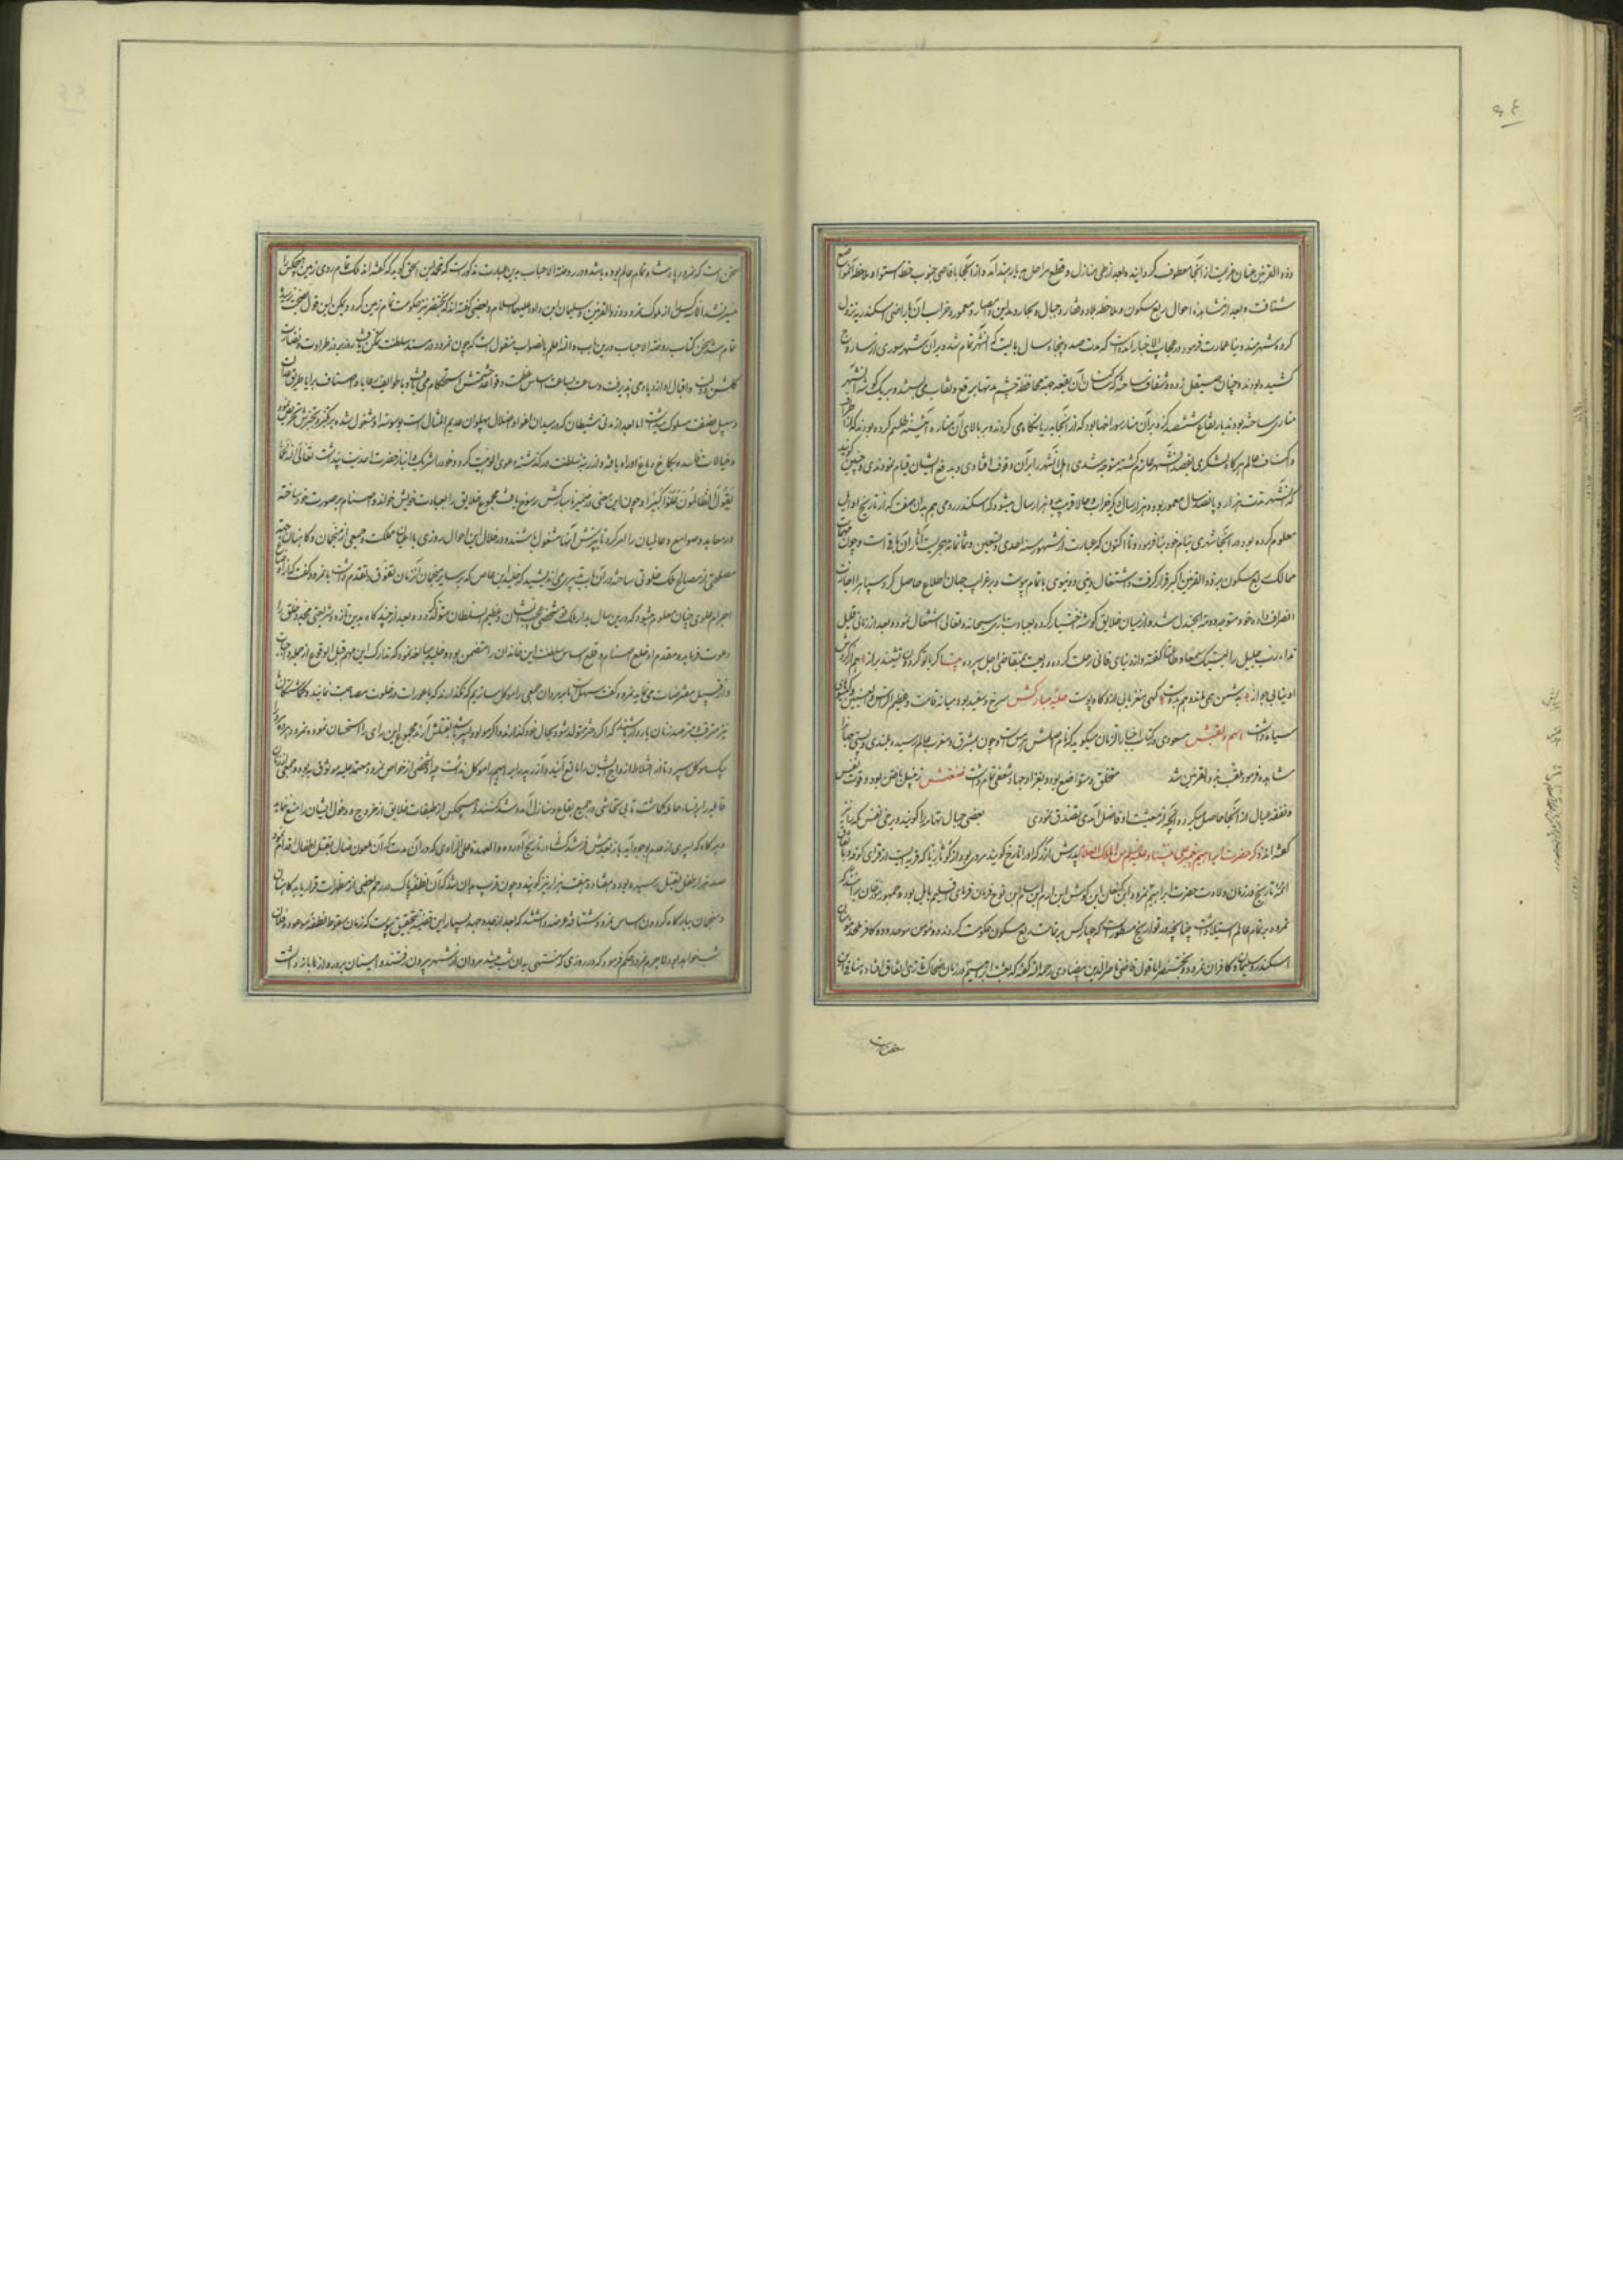 ۶۴
و ذو القرنین عنان عزیمت از آنجا معطوف گردانید و بعد از طی منازل و قطع مراحل به دیار هند آمد و از آنجا باقاصی جنوب خط استوا و ملاحظه آن مواضع
شتافت و بعد از مشاهده احوال ربع مسکون و ملاحظه بلاد و قفار و جبال و بحار و مداین و امصار و معمور و خراب آن باراضی اسکندریه نزول
کرده شهر بنا عمارت فرمود در عجایب الاخبار آمده است که مدت صد و پنجاه سال بایست که آن شهر تمام شد و بر آن شهر سوری از ساروج
کشیده بودند و چنان صیقل زده و شفاف ساخته که کسان آن بقعه جهت محافظت چشم مدتها برقع و نقاب می بستند و بر یک گوشه آن شهر
مناری ساخته بودند بارتفاع ششصد گز و بر آن منار سوراخها بود که از آنجا بدریا نگاه می کردند و بر بالای آن مناره آئینه طلسم کرده بودند که از اطراف
و اکناف عالم هر گاه لشکری بقصد آن شهر عازم گشته متوجه شدی اهل آن شهر را بر آن وقوف افتادی و بدفع ایشان قیام نمودندی و چنین گویند
که آن شهر مدت هزار و پانصد سال معمور بود و هزار سال دیگر خراب و حالا قریب به هزار سال میشود که اسکندر رومی هم بدان صفت که از تاریخ اوایل
معلوم کرده بود در آنجا شهری بنام خود بنا فرمود و تا اکنون که عبارت از شهور سنه احدی و تسعین و ثمانمائه هجریست آثار آن باقی است و چون مهمات
ممالک ربع مسکون بر ذو القرنین اکبر قرار گرفت و اشتغال دینی و دنیوی باتمام پیوست و بر غرایب جهان اطلاع حاصل کرد سپاه را اجازت
انصراف داد و خود متوجه دومة الجندل شد و از میان خلایق گوشه اختیار کرده بعبادت باری سبحانه و تعالی اشتغال نمود و بعد از زمانی قلیل
نداء رب جلیل را لبیک سمعنا و اطعنا گفته و از دنیای فانی رحلت کرده ودیعت بمتقاضی اجل سپرد بیت اگر با تو گردون نشیند براز هم از گردش
او نیابی جواز به شش همی ماند و هم بدوست گهی مغز یابی ازو گاه پوست حلیه مبارکش سرخ و سفید بود و میانه قامت و عظیم الرأس و الحسین و گیسوی
سیاه داشت اسم و لقبش مسعودی در کتاب اخبار الزمان میگوید که نام اصلش هرمس است و چون بمشرق و مغرب عالم رسید و بلندی و پستی جهان را
مشاهده فرمود ملقب بذو القرنین شد متخلق و متواضع بود و بغزا و جهاد شعفی تمام داشت صنعتش زنبیل بافتن بود و قوت نفس
و نفقه عیال از آنجا حاصل میکرد و آنچه از معیشت او فاضل آمدی تصدق نمودی بعضی جبال تهامه را گویند و برخی نفس مکه را نیز
گفته اند ذکر حضرت ابراهیم پیغمبر علی نبینا و علیه السلام من الملک العلام پدرش آزر که او را تارخ گویند مردی بود از کوثا ربا که قریه ایست از قرای کوفه و باتفاق
ائمه تاریخ در زمان ولادت حضرت ابراهیم نمرود ابن کنعان ابن کوش ابن ارم ابن سام ابن نوح فرمان فرمای اقلیم بابل بود و جمهور مورخان برانند که
نمرود بر تمام عالم استیلا داشت چنانچه در تواریخ مسطور است که چهار کس بر تمامت ربع مسکون حکومت کردند دو مؤمن موحد و دو کافر ملحد مؤمنان
اسکندر و سلیمان و کافران نمرود و بختنصر اما قول قاضی ناصر الدین بیضاوی رحمه الله که گفته که بعثت ابراهیم در زمان ضحاک تازی اتفاق افتاد منافی این
سخن است که نمرود پادشاه تمام عالم بوده باشد و در روضة الاحباب بدین عبارت مذکور است که محمد ابن اسحق گوید که گفته اند ملک تمام روی زمین هیچکس را
میسر نشد الا سه کس را از ملوک نمرود و ذو القرنین و سلیمان ابن داود علیهما السلام و بعضی گفته اند که بختنصر نیز حکومت تمام زمین کرد و لیکن این قول بصحت نرسیده
تمام شد سخن کتاب روضة الاحباب درین باب والله اعلم بالصواب منقول است که چون نمرود در مسند سلطنت تمکن یافت روز بروز طراوت و نضارت
گلشن دولت و اقبال او ازدیاد می پذیرفت و ساعت بساعت اساس عظمت و قواعد حشمتش استحکام می یافت و با طوایف رعایا و اصناف برایا طریق عدل
و سبیل نصفت مسلوک میداشت اما بعد از مدتی شیطان که در میدان اغوا و اضلال پهلوان عدیم المثال است بوسوسه او مشغول شده بر کفر و تجبرش تحریص نمود
و خیالات فاسد به کاخ دماغ او راه یافته و از رتبه سلطنت درگذشته دعوی الوهیت کرد و خود را شریک و انباز حضرت احدیت پنداشت تعالی الله عما
یقول الظالمون علوا کبیرا و چون این معنی در ضمیر نامبارکش رسوخ یافت مجموع خلایق را بعبادت خویش خواند و اصنام بر صورت خود ساخته
در معابد و صوامع و عالمیان را امر کرد تا بپرستش آنها مشغول باشند و در خلال این احوال روزی با اعیان مملکت و جمعی از منجمان و کاهنان جهت
مصلحتی از مصالح ملک خلوتی ساخته در آن باب تدبیری می اندیشید که خلید ابن عاص که بر سایر منجمان آن زمان تفوق و تقدم داشت با نمرود گفت که از اوضاع
اجرام علوی چنان معلوم میشود که درین سال بدار الملک تو شخصی عجیب الشان و عظیم السلطان متولد گردد و بعد از چند گاه بدین تازه و شریعتی مجدد خلق را
دعوت فرماید و مقدم او قلع اصنام و قلع اساس سلطنت این خاندان را متضمن بود و خلید مبالغه نمود که تدارک این مهم قبل الوقوع از جمله واجبات
و از قبیل مفترضات می نماید نمرود گفت سهل است ما بر مردان جمعی را موکل سازیم که نگذارند که با عورات در خلوت مصاحبت نمایند و گماشتگان ما
نیز مترقب و مترصد زنان باردار باشند که اگر دختر متولد شود بحال خود گذارند و اگر مولود پسر باشد بقتلش آرند مجموع این رای را استحسان نمود و نمرود بر ده مرد
یک موکل سپرد تا از اختلاط ازواج ایشان را مانع آیند و آزر پدر ابراهیم را موکل نداشت چه آن شخص از خواص نمرود و معتمد علیه و موثوق به بود و جمعی زنان
قابله را بر نساء حامله گماشت تا بی تحاشی در جمیع بقاع و منازل آمد و شد کنند و هیچکس از طبقات خلایق از خروج و دخول ایشان را منع ننماید
و هرگاه که پسری از عدم بوجود آید باز بعدمش فرستند در تاریخ آورده و العهدة علی الراوی که در آن مدت که آن ملعون ضال بقتل اطفال اقدام نمود
صد هزار طفل بقتل رسیده بود و هفتاد و هفت هزار نیز گویند و چون قریب بدان شد که آن نطفه پاک در رحم بعضی از مطهرات قرار یابد کاهنان
و منجمان ببارگاه گردون اساس نمرود شتافته عرضه داشتند که بعد از جد و جهد بسیار این قضیه بتحقیق پیوست که زمان سقوط نطفه موعود در فلان
شب خواهد بود لاجرم نمرود حکم فرمود که در روزی که منتهی بدان شب میشد مردان از شهر بیرون رفتند و امینان بر دروازها باز داشت
حضرات